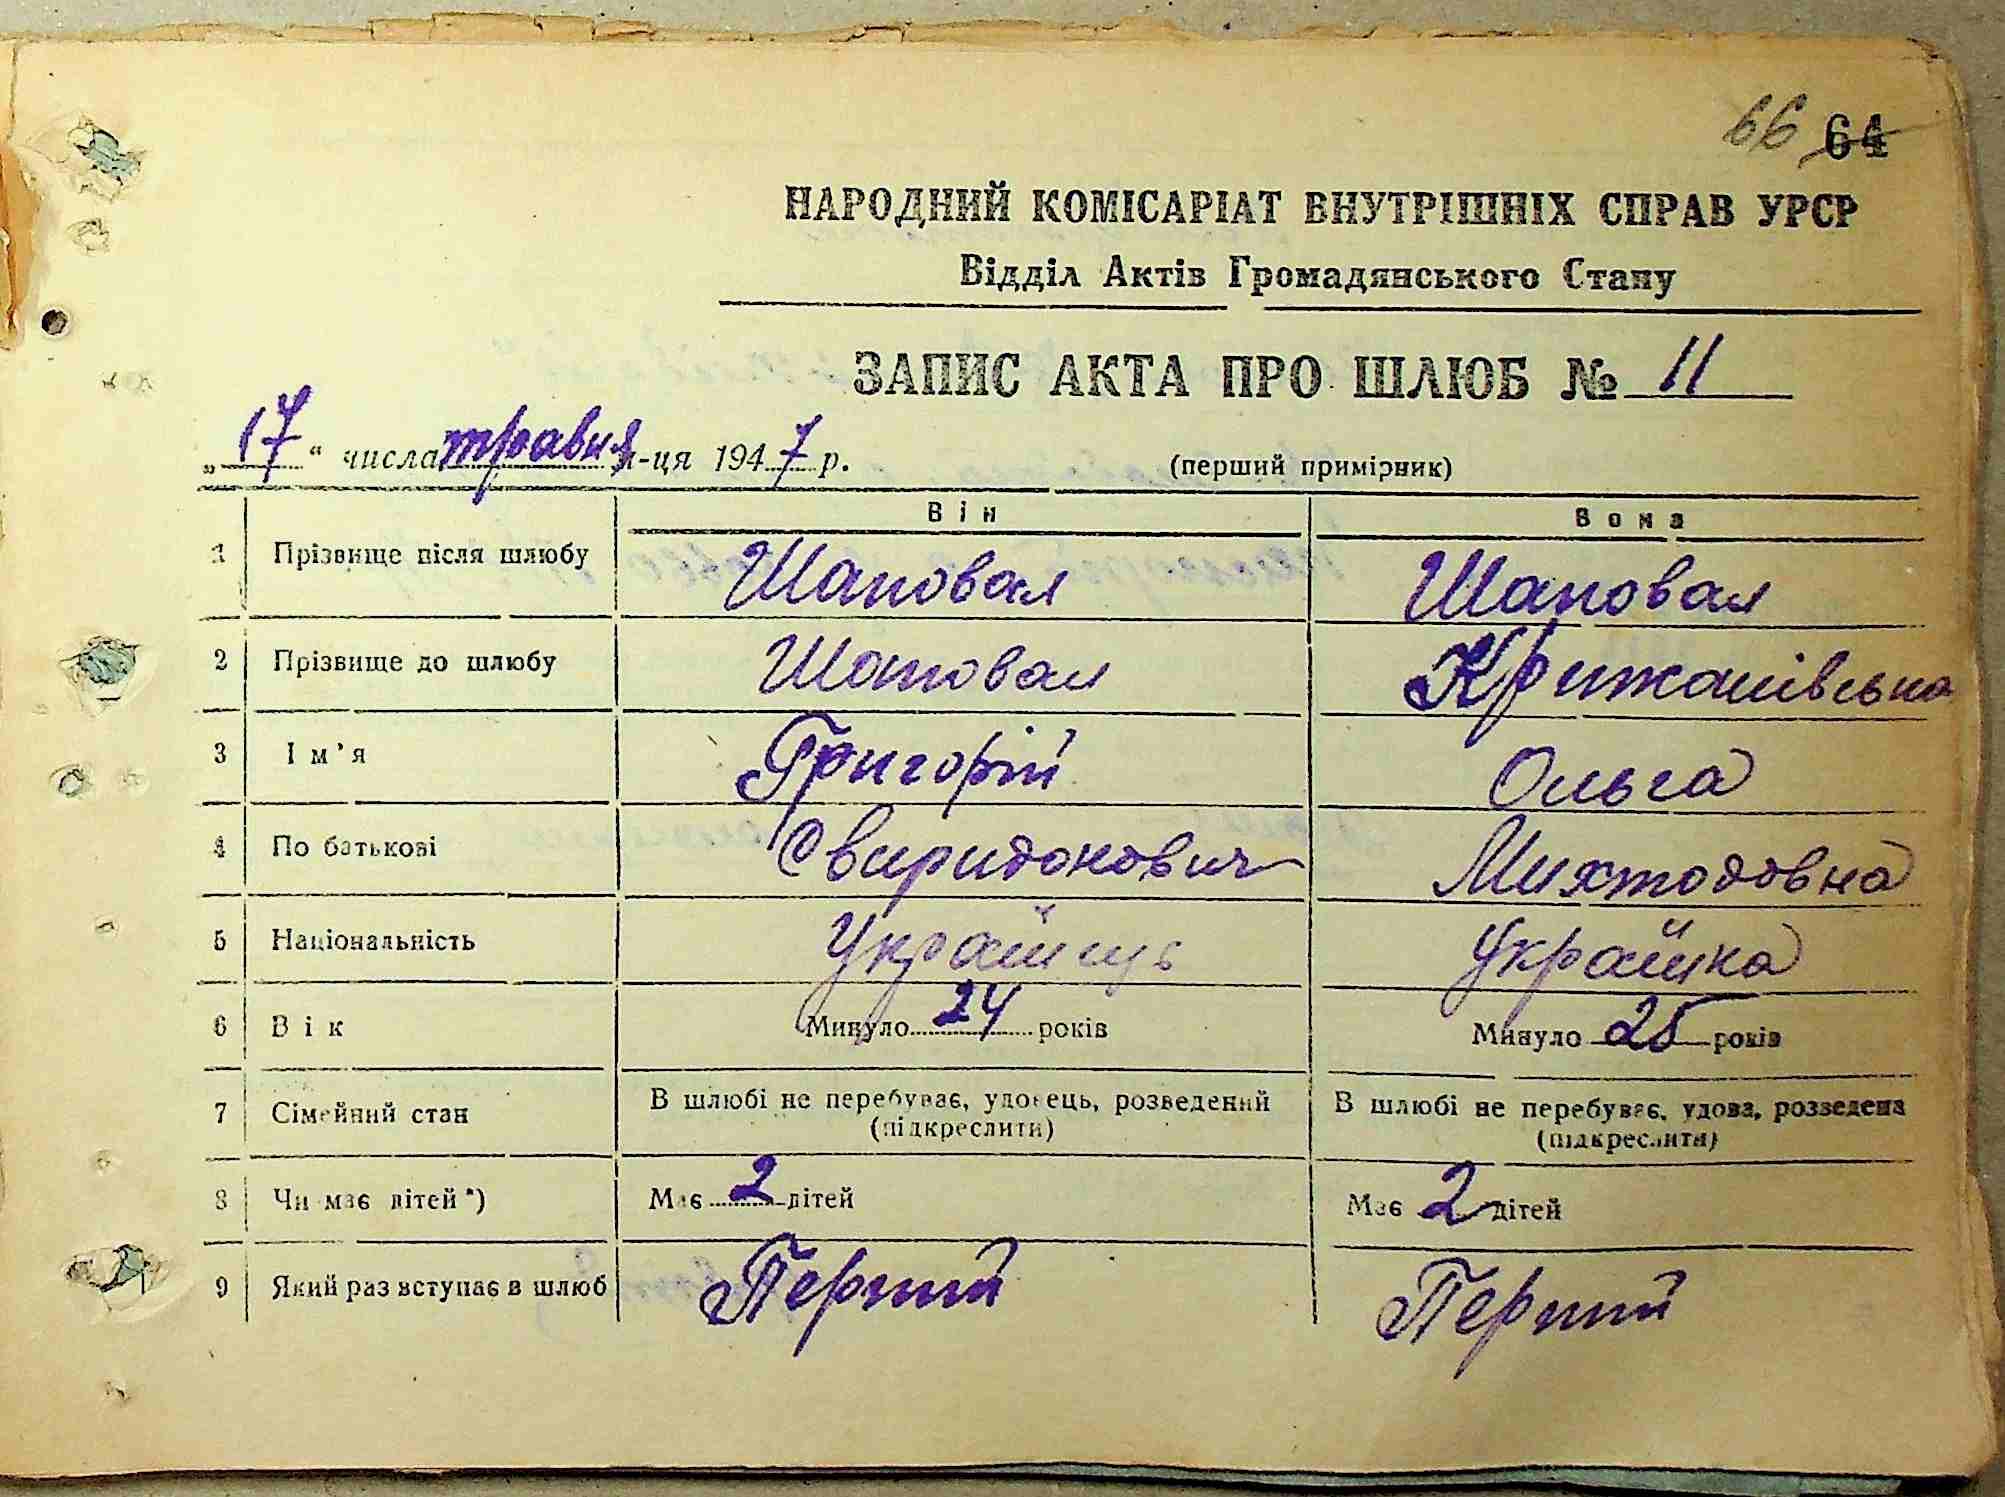 66 64
НАРОДНИЙ КОМІСАРІАТ ВНУТРІШНІХ СПРАВ УРСР
Відділ Актів Громадянського Стану
ЗАПИС АКТА ПРО ШЛЮБ № 11
„17“ числа травня м-ця 1947 р. (перший примірник)
Він Вона
1 Прізвище після шлюбу Шаповал Шаповал
2 Прізвище до шлюбу Шаповал Крижанівська
3 Ім'я Григорій Ольга
4 По батькові Свиридонович Михтодовна
5 Національність Українць Українка
6 Вік Минуло 24 років Минуло 25 років
7 Сімейний стан В шлюбі не перебуває, удовець, розведений В шлюбі не перебуває, удова, розведена
(підкреслити) (підкреслити)
8 Чи має дітей*) Має 2 дітей Має 2 дітей
9 Який раз вступає в шлюб Перший Перший